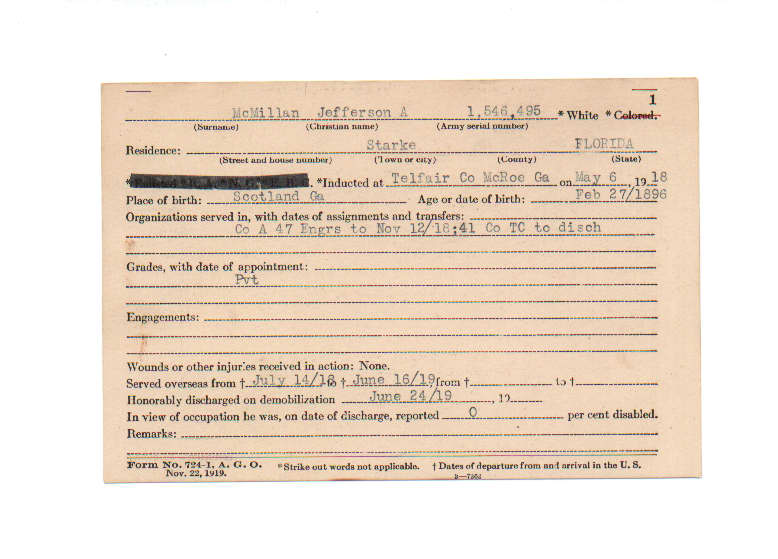 1
McMillan Jefferson A 1,546,495 * White * Colored.
(Surname) (Christian name) (Army serial number)
Residence: Starke FLORIDA
(Street and house number) (Town or city) (County) (State)
*Inducted at Telfair Co McRoe Ga on May 6, 1918
Place of birth: Scotland Ga Age or date of birth: Feb 27/1896
Organizations served in, with dates of assignments and transfers:
Co A 47 Engrs to Nov 12/18;41 Co TC to disch
Grades, with date of appointment:
Pvt
Engagements:
Wounds or other injuries received in action: None.
Served overseas from † July 14/18 to † June 16/19 from † to †
Honorably discharged on demobilization June 24/19, 19
In view of occupation he was, on date of discharge, reported 0 per cent disabled.
Remarks:
Form No. 724-1, A. G. O. *Strike out words not applicable. † Dates of departure from and arrival in the U. S.
Nov. 22, 1919. 3—7362